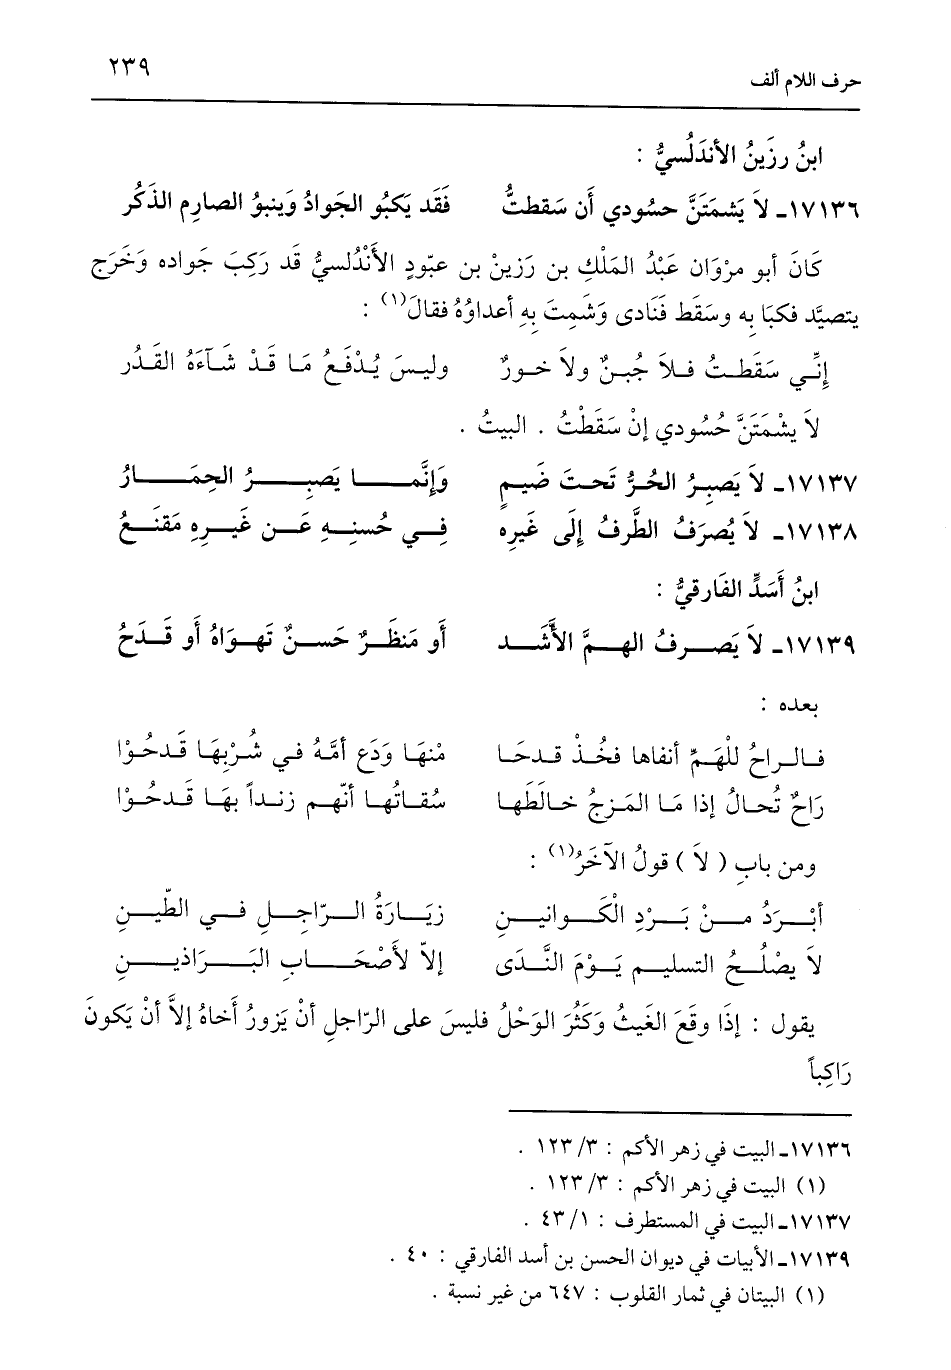 حرف اللام ألف ٢٣٩
ابنُ رزَينُ الأندَلُسيُّ :
١٧١٣٦ـ لاَ يَشمَتَنَّ حسُودي أَن سَقطتُّ فَقَد يَكبُو الجَوادُ وَينبوُ الصارِم الذَكُر
كَانَ أبو مرْوَان عَبْدُ المَلْكِ بن رَزينْ بن عبّودٍ الأَنْدُلسيُّ قَد رَكِبَ جَواده وَخَرج
يتصيَّد فكبَا بِه وسَقَط فَنَادى وَشَمِتَ بِهِ أعداوُهُ فقالَ(١) :
إنِّي سَقَطتُ فلاَ جُبنٌ ولاَ خورٌ وليسَ يُدْفَعُ مَا قَدْ شَآءَهُ القَدُر
لاَ يشْمَتَنَّ حُسُودي إنْ سَقَطْتُ . البيتُ .
١٧١٣٧ـ لاَ يَصبِرُ الحُرُّ تَحتَ ضَيمٍ وَإنَّما يَصبِرُ الحِمَارُ
١٧١٣٨ـ لاَ يُصرَفُ الطَّرفُ إلَى غَيرِه فِي حُسنِهِ عَن غَيرِهِ مَقنَعُ
ابنُ أَسَدٍّ الفَارقيُّ :
١٧١٣٩ـ لاَ يَصرفُ الهمَّ الأَشَد أَو مَنظَرٌ حَسنٌ تَهوَاهُ أو قَدَحُ
بعده :
فالراحُ للْهَمِّ أنفاها فخُذْ قدحَا مْنهَا وَدَع أمَّهُ في شُرْبِهَا قَدحُوْا
رَاحٌ تُحالُ إذا مَا المَزجُ خالَطَها سُقاتُها أنّهم زنداً بهَا قَدحُوْا
ومن بابِ ( لاَ ) قولُ الآخَرُ(١) :
أبْرَدُ منْ بَرْدِ الْكَوانيِن زيَارَةُ الرّاجلِ في الطّينِ
لاَ يصْلُحُ التسليم يَوْمَ النَّدَى إلاّ لأَصْحَابِ البَرَاذيِن
يقول : إذَا وقَعَ الغَيثُ وَكَثُرَ الوَحْلُ فليسَ على الرّاجلِ أنْ يَزورُ أَخاهُ إلاَّ أنْ يَكونَ
رَاكِباً
١٧١٣٦ـ البيت في زهر الأكم : ٣/ ١٢٣ .
(١) البيت في زهر الأكم : ٣/ ١٢٣ .
١٧١٣٧ـ البيت في المستطرف : ١/ ٤٣ .
١٧١٣٩ـ الأبيات في ديوان الحسن بن أسد الفارقي : ٤٠ .
(١) البيتان في ثمار القلوب : ٦٤٧ من غير نسبة .